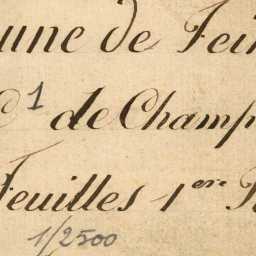 une de Fein
C¹ de Champ
Feuilles 1ère
1/2500